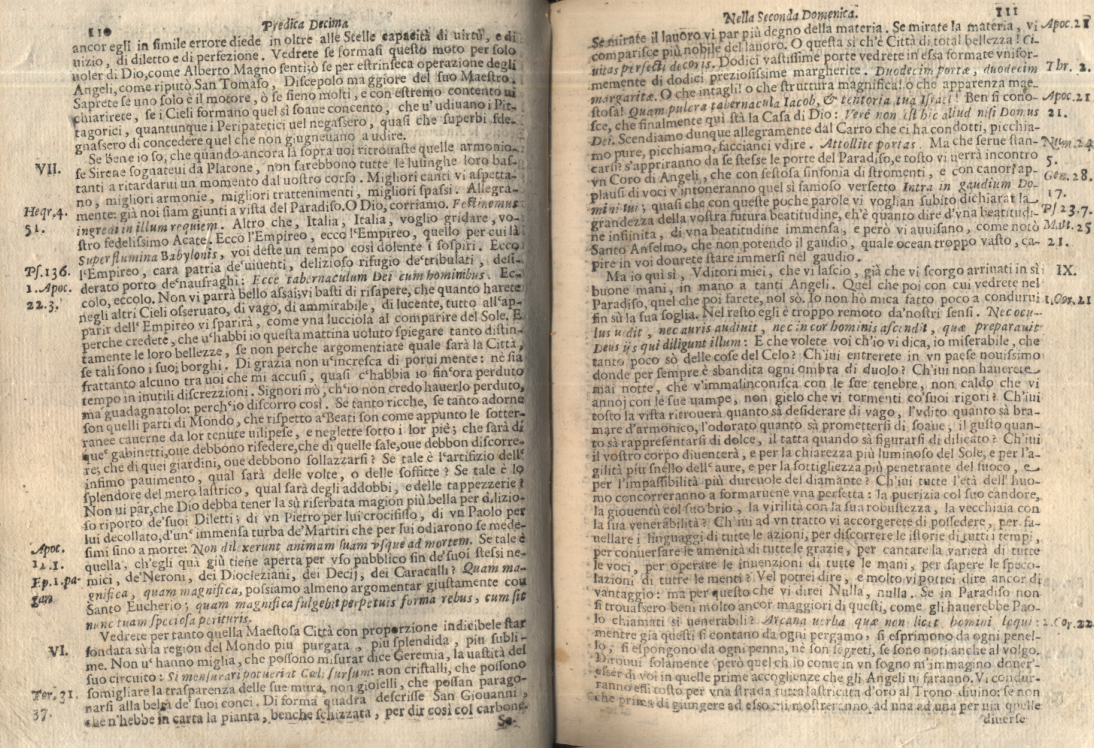 110
Predica Decima
ancor egli in simile errore diede in oltre alle Stelle capacità di uirtù, e di
uizio, di diletto e di perfezione. Vedrete se formasi questo moto per solo
uoler di Dio, come Alberto Magno sentì; ò se per estrinseca operazione degli
Angeli, come riputò San Tomaso, Discepolo maggiore del suo Maestro.
Saprete se uno solo è il motore, ò se sieno molti, e con estremo contento ui
chiarirete, se i Cieli formano quel sì soaue concento, che u'udiuano i Pit-
tagorici, quantunque i Peripatetici uel negassero, quasi che superbi sde-
gnassero di concedere quel che non giugneuano a udire.
VII.
Se bene io so, che quando ancora là sopra uoi ritrouaste quelle armonio-
se Sirene sognateui da Platone, non sarebbono tutte le lusinghe loro bas-
tanti a ritardarui un momento dal uostro corso. Migliori canti vi aspetta-
no, migliori armonie, migliori trattenimenti, migliori spassi. Allegra-
mente: già noi siam giunti a vista del Paradiso. O Dio, corriamo. Festinemus
Heqr, 4.
ingredi in illum requiem. Altro che, Italia, Italia, voglio gridare, vo-
51.
stro fedelissimo Acate. Ecco l'Empireo, ecco l'Empireo, quello per cui là
Super flumina Babylonis, voi deste un tempo così dolente i sospiri. Ecco
l'Empireo, cara patria de'uiuenti, delizioso rifugio de'tribulati, desi-
Ps. 136.
derato porto de'naufraghi: Ecce tabernaculum Dei cum hominibus. Ec-
1. Apoc.
colo, eccolo. Non vi parrà bello assai; vi basti di risapere, che quanto harete
22. 3.
negli altri Cieli osseruato, di vago, di ammirabile, di lucente, tutto all'ap-
parir dell'Empireo vi sparirà, come vna lucciola al comparire del Sole. E
perche credete, che u'habbi io questa mattina uoluto spiegare tanto distin-
tamente le loro bellezze, se non perche argomentiate quale sarà la Città,
se tali sono i suoi borghi. Di grazia non u'incresca di porui mente: ne sia
frattanto alcuno tra uoi che mi accusi, quasi c'habbia io fin'ora perduto
tempo in inutili discrezzioni. Signori nò, ch'io non credo hauerlo perduto,
ma guadagnatolo: perch'io discorro così. Se tanto ricche, se tanto adorne
son quelli parti di Mondo, che rispetto a'Beati son come appunto le sotter-
ranee cauerne da lor tenute uilipese, e neglette sotto i lor piè; che sarà di
que' gabinetti, oue debbono risedere, che di quelle sale, oue debbon discorre-
re; che di quei giardini, oue debbono sollazzarsi? Se tale è l'artifizio dell'
infimo pauimento, qual sarà delle volte, o delle soffitte? Se tale è lo
splendore del mero lastrico, qual sarà degli addobbi, e delle tappezzerie?
Non ui par, che Dio debba tener la sù riserbata magion più bella per dilizio-
so riporto de'suoi Diletti; di vn Pietro per lui crocifisso, di vn Paolo per
lui decollato, d'un' immensa turba de'Martiri che per lui odiarono se mede-
Apoc.
simi sino a morte: Non dilexerunt animam suam vsque ad mortem. Se tale è
quella, ch'egli quà giù tiene aperta per vso pubblico fin de'suoi stessi ne-
Ep. 1. pa-
mici, de'Neroni, dei Diocleziani, dei Decij, dei Caracalli? Quam ma-
gnifica, quam magnifica, possiamo almeno argomentar giustamente con
Santo Eucherio; quam magnifica fulgebit perpetuis forma rebus, cum sit
nunc tuam speciosa perituris.
VI.
Vedrete per tanto quella Maestosa Città con proporzione indicibele star
fondata sù la region del Mondo più purgata, più splendida, più subli-
me. Non u' hanno miglia, che possono misurar dice Geremia, la uastità del
suo circuito: Si mensurari potuerit Celi sursum: non cristalli, che possono
Ter. 31.
somigliare la trasparenza delle sue mura, non gioielli, che possan parago-
37.
narsi alla beltà de' suoi conci. Di forma quadra descrisse San Giouanni,
che n'hebbe in carta la pianta, benche schizzata, per dir così col carbone.
Se
Nella Seconda Domenica.
111
Se mirate il lauoro vi par più degno della materia. Se mirate la materia, vi
Apoc. 21
comparisce più nobile del lauoro. O questa sì ch'è Città di total bellezza! Ci-
uitas perfecti decoris. Dodici vastissime porte vedrete in essa formate vnifor-
Thr. 2.
memente di dodici preziosissime margherite. Duodecim portæ, duodecim
margaritæ. O che intagli! o che struttura magnifica! o che apparenza mae-
Apoc. 21
stosa! Quam pulcra tabernacula Iacob, & tentoria tua Israel! Ben si cono-
21.
sce, che finalmente qui stà la Casa di Dio: Verè non est hic aliud nisi Domus
Dei. Scendiamo dunque allegramente dal Carro che ci ha condotti, picchia-
mo pure, picchiamo, facciancì vdire. Attollite portas. Ma che serue stan-
Num. 24.
carsi? s'appriranno da se stesse le porte del Paradiso, e tosto vi uerrà incontro
5.
vn Coro di Angeli, che con festosa sinfonia di stromenti, e con canori ap-
Gen. 28.
plausi di voci v'intoneranno quel sì famoso versetto Intra in gaudium Do-
17.
mini tui; quasi che con queste poche parole vi voglian subito dichiarar la
Ps. 23. 7.
grandezza della vostra futura beatitudine, ch'è quanto dire d'vna beatitudi-
Matt. 25
ne infinita, di vna beatitudine immensa, e però vi auuisano, come notò
21.
Santo Anselmo, che non potendo il gaudio, quale ocean troppo vasto, ca-
pire in voi dourete stare immersi nel gaudio.
IX.
Ma io qui sì, Vditori miei, che vi lascio, già che vi scorgo arriuati in sì
buone mani, in mano a tanti Angeli. Quel che poi con cui vedrete nel
Paradiso, quel che poi farete, nol sò. Io non hò mica fatto poco a condurui
1. Cor. 21
fin sù la sua soglia. Nel resto egli è troppo remoto da'nostri sensi. Nec ocu-
lus uidit, nec auris audiuit, nec in cor hominis ascendit, quæ preparauit
Deus ijs qui diligunt illum: E che volete voi ch'io vi dica, io miserabile, che
tanto poco sò delle cose del Celo? Ch'iui entrerete in vn paese nouissimo
donde per sempre è sbandita ogni ombra di duolo? Ch'iui non hauerete
mai notte, che v'immalinconisca con le sue tenebre, non caldo che vi
annoj con le sue uampe, non gielo che vi tormenti co'suoi rigori? Ch'iui
tosto la vista ritrouerà quanto sà desiderare di vago, l'vdito quanto sà bra-
mare d'armonico, l'odorato quanto sà prometterssi di soaue, il gusto quan-
to sà rappresentarsi di dolce, il tatta quando sà figurarsi di dilicato? Ch'iui
il vostro corpo diuenterà, e per la chiarezza più luminoso del Sole, e per l'a-
gilità più snello dell'aure, e per la sottigliezza più penetrante del fuoco, e
per l'impassibilità più dureuole del diamante? Ch'iui tutte l'età dell'huo-
mo concorreranno a formaruene vna perfetta: la puerizia col suo candore,
la giouentù col suo brio, la virilità con la sua robustezza, la vecchiaia con
la sua venerabilità? Ch'iui ad vn tratto vi accorgerete di possedere, per fa-
uellare i linguaggi di tutte le azioni, per discorrere le istorie di tutti i tempi,
per conuersare le amenità di tutte le grazie, per cantare la varietà di tutte
le voci, per operare le inuenzioni di tutte le mani, per sapere le speco-
lazioni di tutte le menti? Vel potrei dire, e molto vi potrei dire ancor di
vantaggio: ma per questo che vi direi Nulla, nulla. Se in Paradiso non
si trouassero beni molto ancor maggiori di questi, come gli hauerebbe Pao-
lo chiamati sì uenerabili? Arcana uerba quæ non licet homini loqui:
2. Cor. 22
mentre già questi si contano da ogni pergamo: si esprimono da ogni penel-
lo, si espongono da ogni penna, nè son segreti, se sono noti anche al volgo.
Dironui solamente però quel ch'io come in vn sogno m'immagino douer'
esser di voi in quelle prime accoglienze che gli Angeli ui faranno. Vi condur-
ranno essi tosto per vna strada tutta lastricata d'oro al Trono diuino: se non
che prima di giungere ad esso, vi mostreranno ad una ad una per uia quelle
diuerse